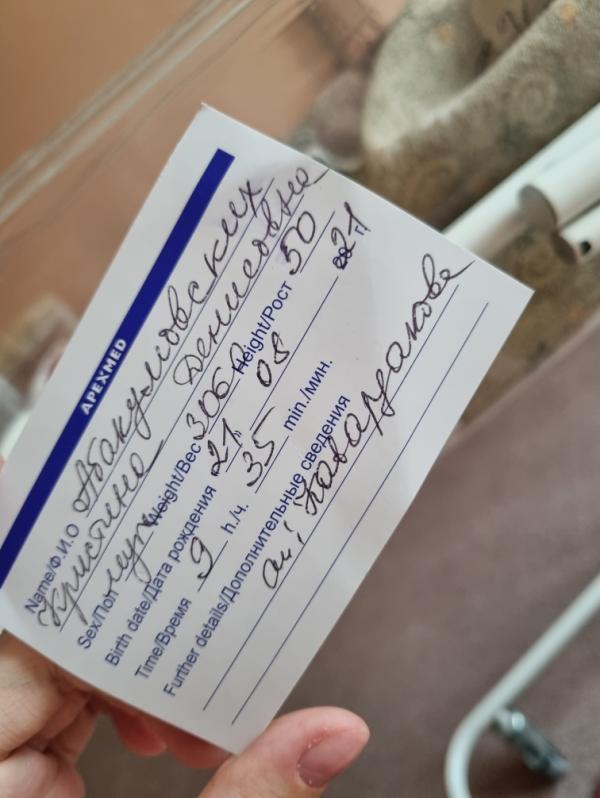 APEXMED
Name/Ф.И.О Абакумовских
Кристина Денисовна
Sex/Пол муж Weight/Вес 3060 Height/Рост 50
Birth date/Дата рождения 21 08 2021 г.
Time/Время 9 h./ч. 35 min./мин.
Further details/Дополнительные сведения
ак: Ковардакова